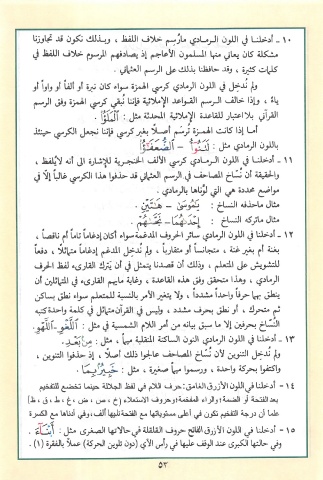 ١٠ - أدخلنا في اللون الرمادي مارُسِم خلاف اللفظ ، وبذلك نكون قد تجاوزنا
مشكلة كان يعاني منها المسلمون الأعاجم إذ يصادفهم المرسوم خلاف اللفظ في
كلمات كثيرة ، وقد حافظنا بذلك على الرسم العثماني .
ولم نُدخِل في اللون الرمادي كرسي الهمزة سواء كان نبرة أو ألفاً أو واواً أو
ياءً ، وإذا خالف الرسم القواعد الإملائية فإننا نُبقي كرسي الهمزة وفق الرسم
القرآني بلا اعتبار للقاعدة الإملائية المحدثة مثل :
أما إذا كانت الهمزة تُرسَم أصلاً بغير كرسي فإننا نجعل الكرسي حينئذ
باللون الرمادي مثل :
١١ - أدخلنا في اللون الرمادي كرسي الألف الخنجرية للإشارة الى أنه لايُلفظ ،
والحقيقة أن نُسَّاخ المصاحف في الرسم العثماني قد حذفوا هذا الكرسي غالباً إلاّ في
مواضع محددة هي التي لوَّناها بالرمادي .
مثال ماحذفه النساخ : يَٰمُوسَىٰ -
مثال ماتركه النساخ : إِحْدَىٰهُمَا -
١٢ - أدخلنا في اللون الرمادي سائر الحروف المدغمة سواء أكان إدغاماً تاماً أم ناقصاً ،
بغنة أم بغير غنة ، متجانساً أو متقارباً ، ولم نُدخِل المدغم إدغاماً متماثلاً ، دفعاً
للتشويش على المتعلم ، وذلك أن قصدنا يتمثل في أن يَترك القارىء لفظ الحرف
الرمادي ، وهذا متحقق وفق هذه القاعدة ، وغاية مايهم القارىء في المتماثلين أن
ينطق بهما حرفاً واحداً مشدداً ، ولا يتغير الأمر بالنسبة للمتعلم سواء نطق بساكن
ثم متحرك ، أو نطق بحرف مشدد ، وليس في القرآن متماثل في كلمة واحدة كتبه
النُسَّاخ بحرفين إلا ما سبق بيانه من أمر اللام الشمسية في مثل : اللَّغْوِ - اللَّهْوِ.
١٣ - أدخلنا في اللون الرمادي النون الساكنة المتقلبة إلى ميم : مِنۢ بَعْدِ.
ولم نُدخِل التنوين لأن نُسَّاخ المصاحف عالجوا ذلك أصلاً ، إذ حذفوا التنوين ،
واكتفوا بحركة واحدة ، ورسموا ميماً صغيرة ، مثل : خَبِيرُۢ بِمَا .
١٤ - أدخلنا في اللون الأزرق الغامق : حرف اللام في لفظ الجلالة حينما تخضع للتفخيم
بعد الفتحة أو الضمة ؛ والراء المفخمة ؛ وحروف الاستعلاء ( خ ، س ، ض ، غ ، ط ، ق ، ظ )
علماً أن درجة التفخيم تكون في أعلى مستوياتها مع الفتحة تليها ألف ، وفي أدناها مع الكسرة
١٥ - أدخلنا في اللون الأزرق الفاتح حروف القلقلة في حالاتها الصغرى مثل :
وفي حالتها الكبرى عند الوقف عليها في رأس الآي (دون تلوين الحركة) عملاً بالفقرة (١) .
٥٣